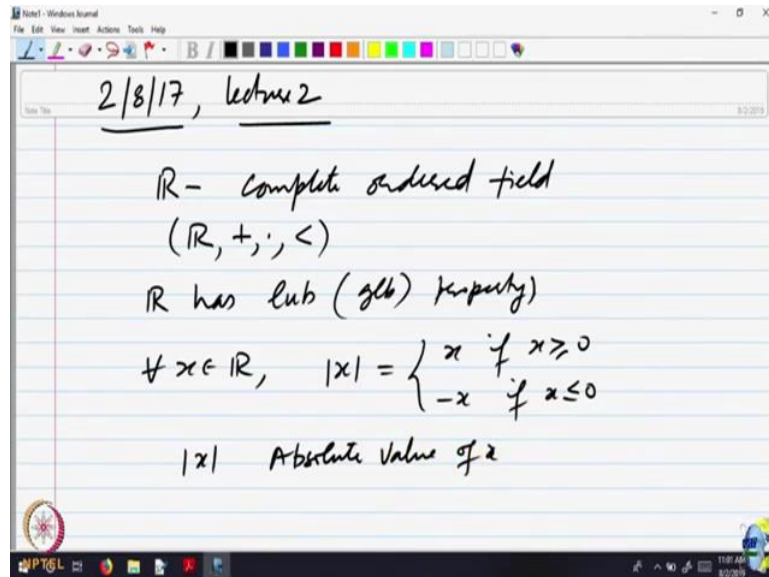 Note1 - Windows Journal
File Edit View Insert Actions Tools Help
B I
2/8/17, lecture 2
Note Title
8/2/2019
ℝ - complete ordered field
(ℝ, +, ·, <)
ℝ has lub (glb) property)
∀ x ∈ ℝ, |x| = { x if x ≥ 0
-x if x ≤ 0
|x| Absolute value of x
NPTEL
11:01 AM
8/2/2019